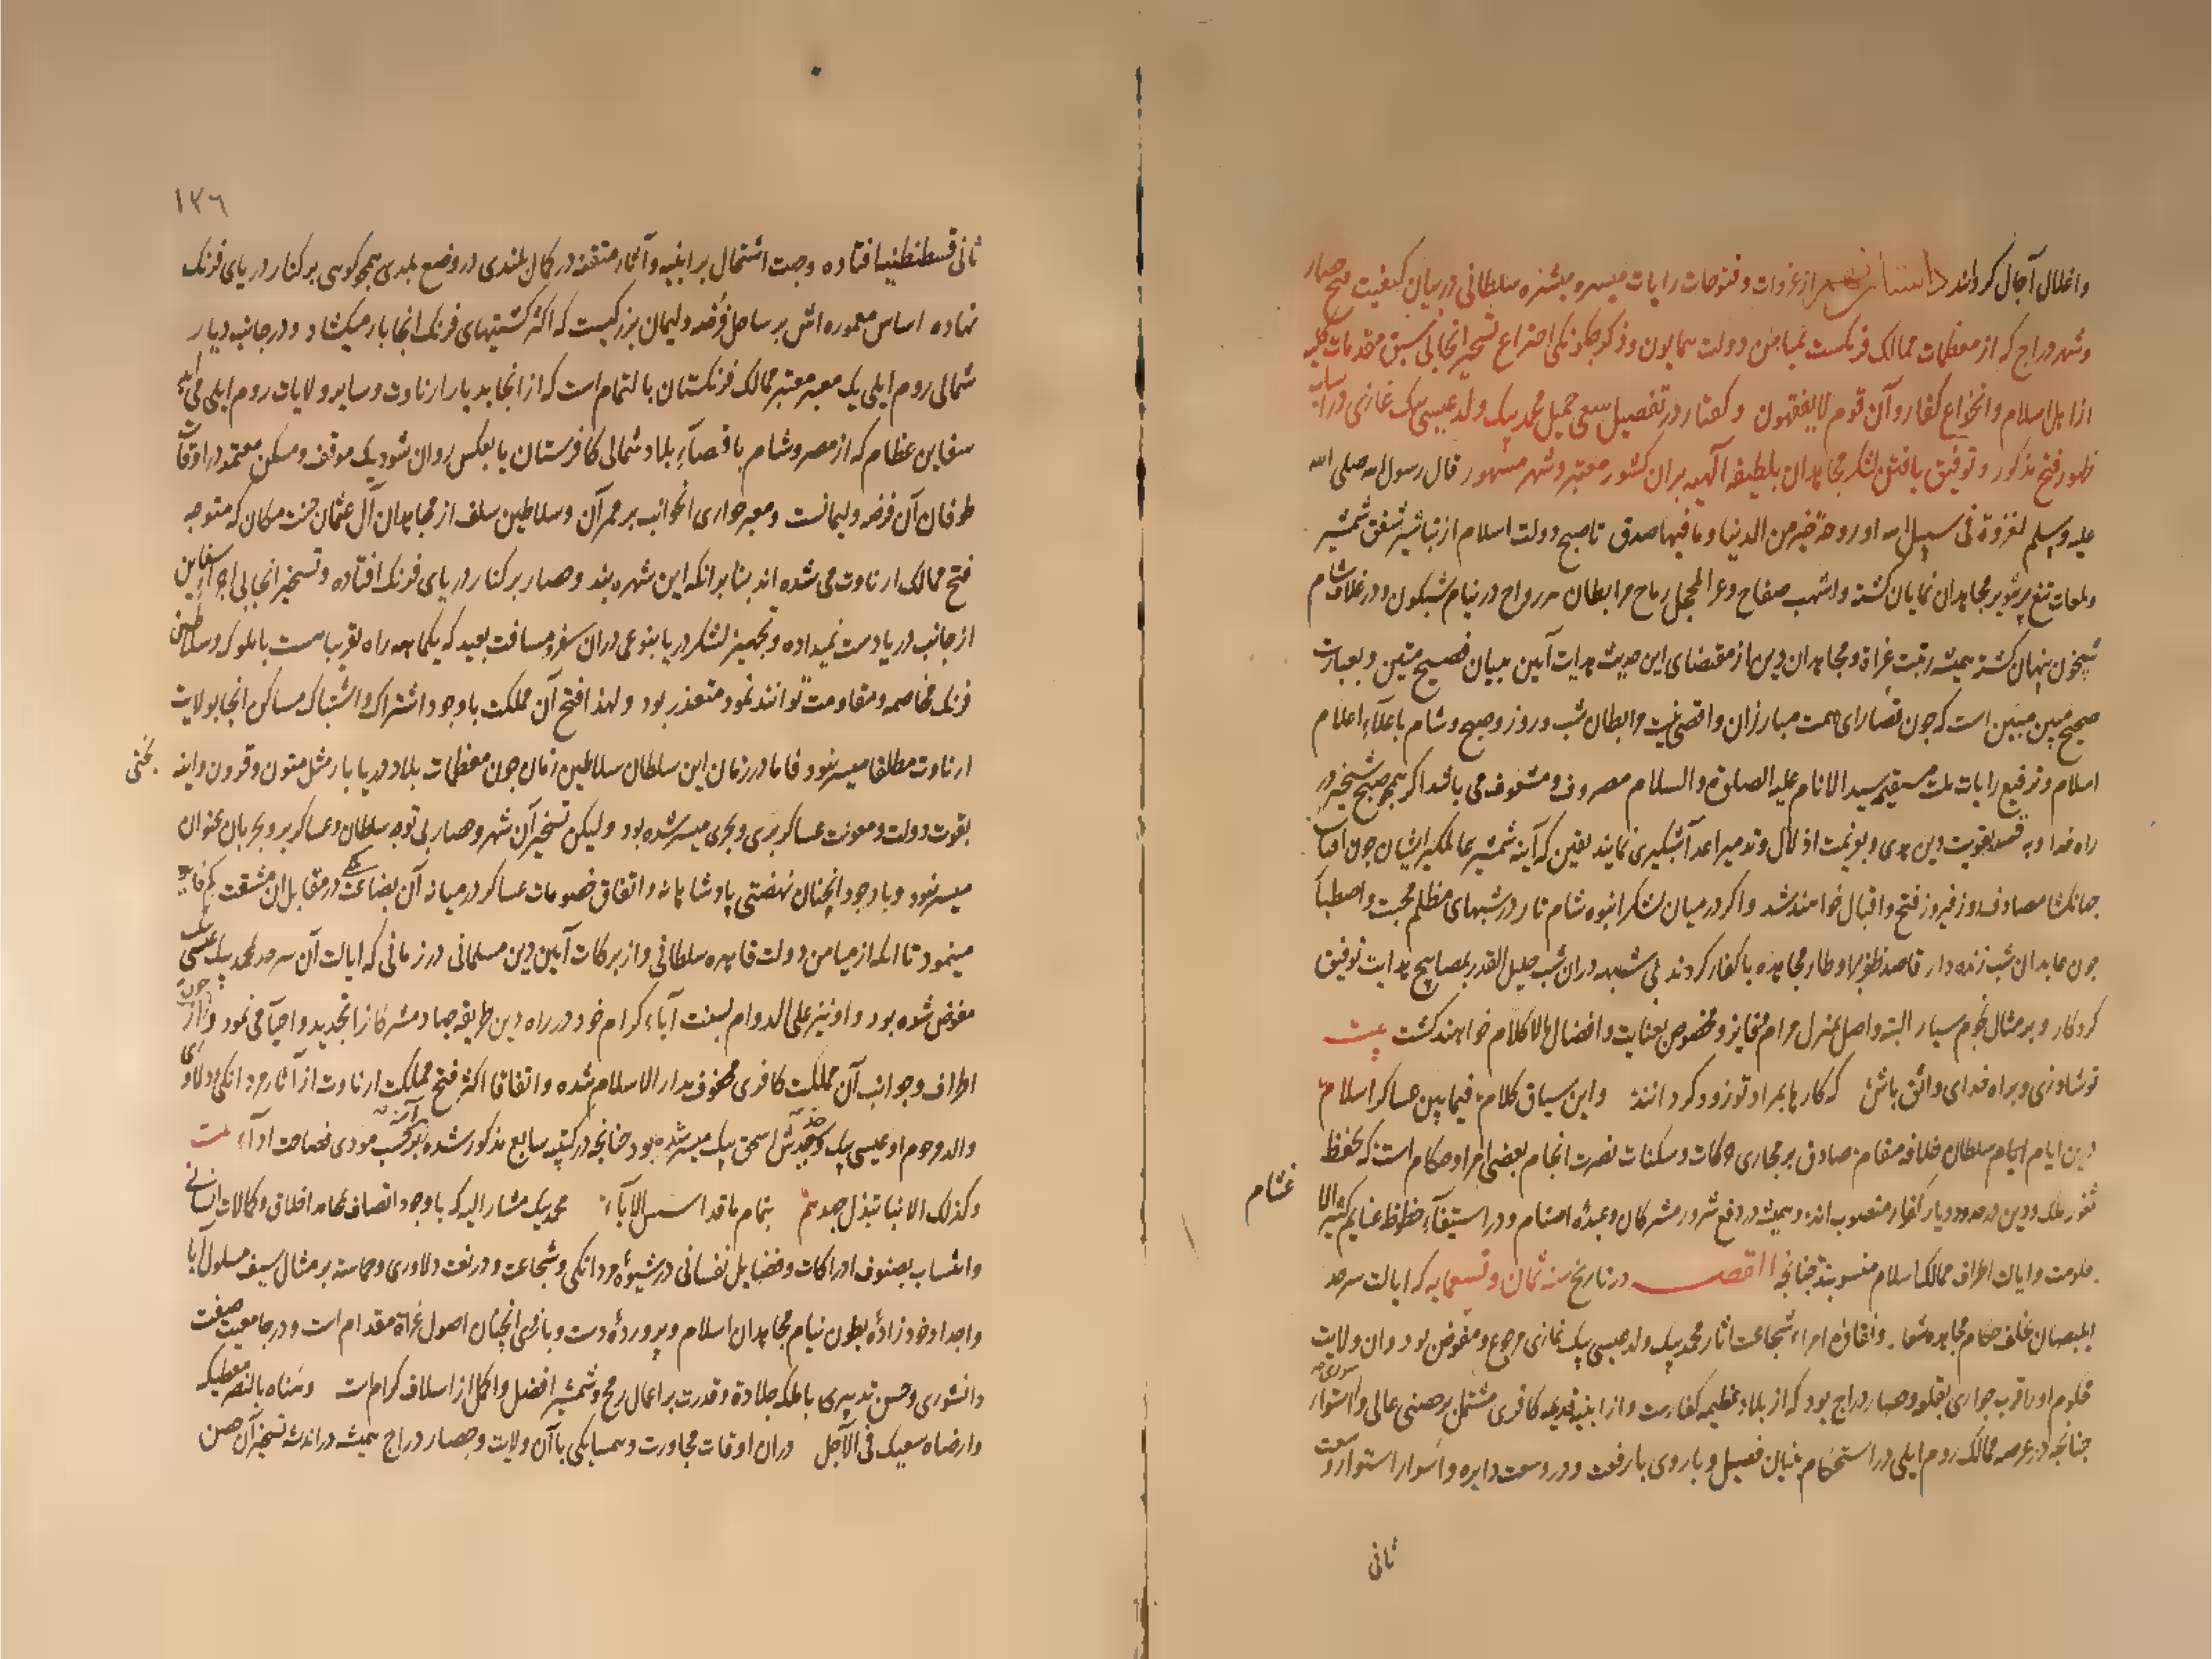 و اغلال آجال کردانند داستان نهم از غزوات و فتوحات رایات میسر و مبشره سلطانی در بیان کیفیت فتح حصار
و شهر دراج که از معظمات ممالک فرنکست بمیامن دولت همایون و ذکر چکونکی اختراع تسخیر آنجا بی سبق مقدمات
از اهل اسلام و انخداع کفار و آن قوم لا یفقهون و کفتار در تفصیل سعی جمیل محمد بیک ولد عیسی بیک غازی در
ظهور فتح مذکور و توفیق یافتن لشکر مجاهدان بلطیفه الهیه بران کشور معتبر و شهر مشهور قال رسول الله صلی الله
علیه وسلم لغزوة فی سبیل الله او روحة خیر من الدنیا و ما فیها صدق تا صبح دولت اسلام از تباشیر شفق شمشیر
و لمعات تیغ پرتنویر مجاهدان نمایان کشته و اشهب صفاح و رماح در نیام شبکون و در غلاف شام
شبخون پنهان کشته همیشه رتبت غزاة و مجاهدان دین از مقتضای این حدیث هدایت آیین ببیان فصیح متین و بعبارت
صحیح مبین مبین است که چون قصارای همت مبارزان و اقصی نیت و ابطان شب و روز و صبح و شام باعلاء اعلام
اسلام و ترفیع رایات ملت مستقیم سید الانام علیه الصلوة والسلام مصروف و مشعوف می باشد اکر همچو صبح شبخیز در
راه خدا و به قصد تقویت دین هدی و بعزیمت اذلال و تدمیر اعدا آشبکیری نمایند یقین که آینه شمشیر عالمکیر ایشان چون آفتاب
جهانکشا مصادف روز فیروز فتح و اقبال خواهند شد و اکر در میان لشکر انبوه شام تار و در شبهای مظلم
چون عابدان شب زنده دار قاصد ظفر بر اوطار مجاهده با کفار کردند بی شبهه دران شب جلیل القدر بمصابیح هدایت توفیق
کردکار و بر مثال نجوم سیار البته واصل منزل مرام فایز و مخصوص بعنایت و افضال مالا کلام خواهند کشت بیت
تو شاد زی و براه خدای واثق باش که کارها بمراد تو زود کردانند و این سیاق کلام فیما بین عساکر اسلام
درین ایام سلطان خلافه مقام صادق بر مجاری حرکات و سکنات نصرت انجام بعضی امرا و حکام است که بحفظ
ثغور ملک و دین در حدود دیار کفار منصوب اند و همیشه در دفع شرور مشرکان و عبده اصنام و در استیفآء حظوظ غنایم کثیر الا
غتنام
حکومت و ایالت اطراف ممالک اسلام منسوبند چنانچه القصه در تاریخ سنه ثمان و تسعمایه که ایالت سرحد
ایلبصان خلف حکام مجاهد شعار و نقاوه امراء شجاعت اثار محمد بیک ولد عیسی بیک غازی مرجوع و مفوض بود و ان ولایت
محکوم او را قرب جواری بقلعه و حصار دراج بود که از بلاد عظیمه کفارست و از ابنیه قدیمه کافری مشتمل بر حصنی عالی و استوار
چنانچه در عرصه ممالک روم ایلی در استحکام بنیان فصیل و باروی با رفعت و در وسعت دایره و اسوار استوار و
ثانی
١٣٦
ثانی قسطنطنیه افتاده و جهت اشتمال بر ابنیه و آثار متقنه در کمال بلندی در وضع بلدی همچو کوهی بر کنار دریای فرنک
نهاده اساس معموره اش بر ساحل فرضه و لیمان بزرکیست که اکثر کشتیهای فرنک انجا بار میکشاد و در جانب دیار
شمالی روم ایلی یک معبر معتبر ممالک فرنکستان بالتمام است که از انجا بدیار ارناوت و سایر ولایات روم ایلی می
سفاین عظام که از مصر و شام باقصآء بلاد شمالی کافرستان یا بعکس روان شود یک موقف و مسکن معتمد در اوقات
طوفان آن فرضه و لیمانست و معبر جواری الجوانب بر ممر آن و سلاطین سلف از مجاهدان آل عثمان جنت مکان که متوجه
فتح ممالک ارناوت می شده اند بنا برانکه این شهره بند و حصار بر کنار دریای فرنک افتاده و تسخیر انجا بی اجراء سفاین
از جانب دریا دست نمیداده و تجهیز لشکر دریا بنوعی دران سفر و مسافت بعید که یکماهه راه تقریباست با ملوک و سلاطین
فرنک مخاصمه و مقاومت توانند نمود متعذر بود و لهذا فتح آن مملکت با وجود اشتراک و اشتباک مساکن انجا بولایت
ارناوت مطلقا میسر نبود فاما در زمان این سلطان سلاطین زمان چون معظمات بلاد دریا بار مثل متون و قرون و اینه بختی
بقوت دولت و معونت عساکر بری و بحری میسر شده بود و لیکن تسخیر آن شهر و حصار بی توجه سلطان و عساکر بر و بحر بان عنوان
میسر نبود و با وجود آنچنان نهضتی پادشاهانه و اتفاق خصومات عساکر در میانه آن بضاعت در مقابل ان مشقت
مینمود تا انکه از میامن دولت قاهره سلطانی و از برکات آیین دین مسلمانی در زمانی که ایالت آن سرحد محمد بیک عیسی بیک
مفوض شده بود و او نیز علی الدوام بسنت آباء کرام خود در راه دین طریقه جهاد مشرکانرا تجدید و احیآ می نمود و چون از
اطراف و جوانب آن مملکت کافری محفوف بدار الاسلام شده و اتفاقا اکثر فتح مملکت ارناوت از آثار مردانکی و دلاوری
والد مرحوم او عیسی بیک و جدش اسحق بیک میسر شده بود چنانچه در کتیبه سابع مذکور شده مودی فصاحت آداء بیت
و کذلک الانبا تبذل جهدهم بتمام ما قد اسس الابآء محمد بیک مشار الیه که با وجود اتصاف بمحامد اخلاق و کمالات انسانی
و انتساب بصنوف ادراکات و فضایل نفسانی در شیوه مردانکی و شجاعت و در نعت دلاوری و حماسته بر مثال سیف مسلول آبا
و اجداد خود زاده بطون نیام مجاهدان اسلام و پرورده دست و بازوی انچنان اصول غزاة مقدام است و در جامعیت صفت
دانشوری و حسن تدبیری با ملکه جلادة و قدرت بر اعمال رمح و شمشیر افضل و اکمل از اسلاف کرام است
و ارضاه سعیک فی الآجل دران اوقات مجاورت و همسایکی با آن ولایت و حصار دراج همیشه در اندیشه تسخیر آن حصن